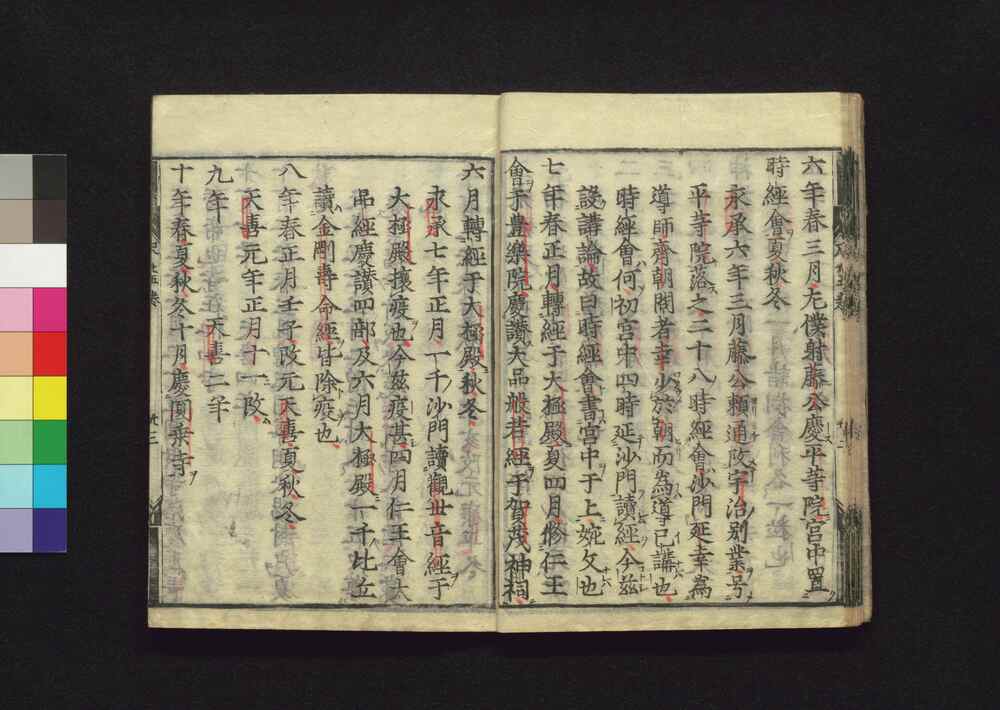 六年春三月左僕射藤公慶平等院宮中置
時經會夏秋冬
永承六年三月藤公頼通改宇治別業号
平等院落之二十八時經會沙門延幸爲
導師齋朝闕者幸少於朝而爲導已講也
時經會何初宮中四時延沙門讀經今茲
設講論故曰時經會書宮中于上婉文也
七年春正月轉經于大極殿夏四月修仁王
會于豊樂院慶讃大品般若經于賀茂神祠
六月轉經于大極殿秋冬
永承七年正月一千沙門讀觀世音經于
大極殿攘疫也今茲疫甚四月仁王會大
品經慶讃四部及六月大極殿一千比丘
讀金剛壽命經皆除疫也
八年春正月壬子改元天喜夏秋冬
天喜元年正月十一改
九年 天喜二年
十年春夏秋冬十月慶圓乗寺